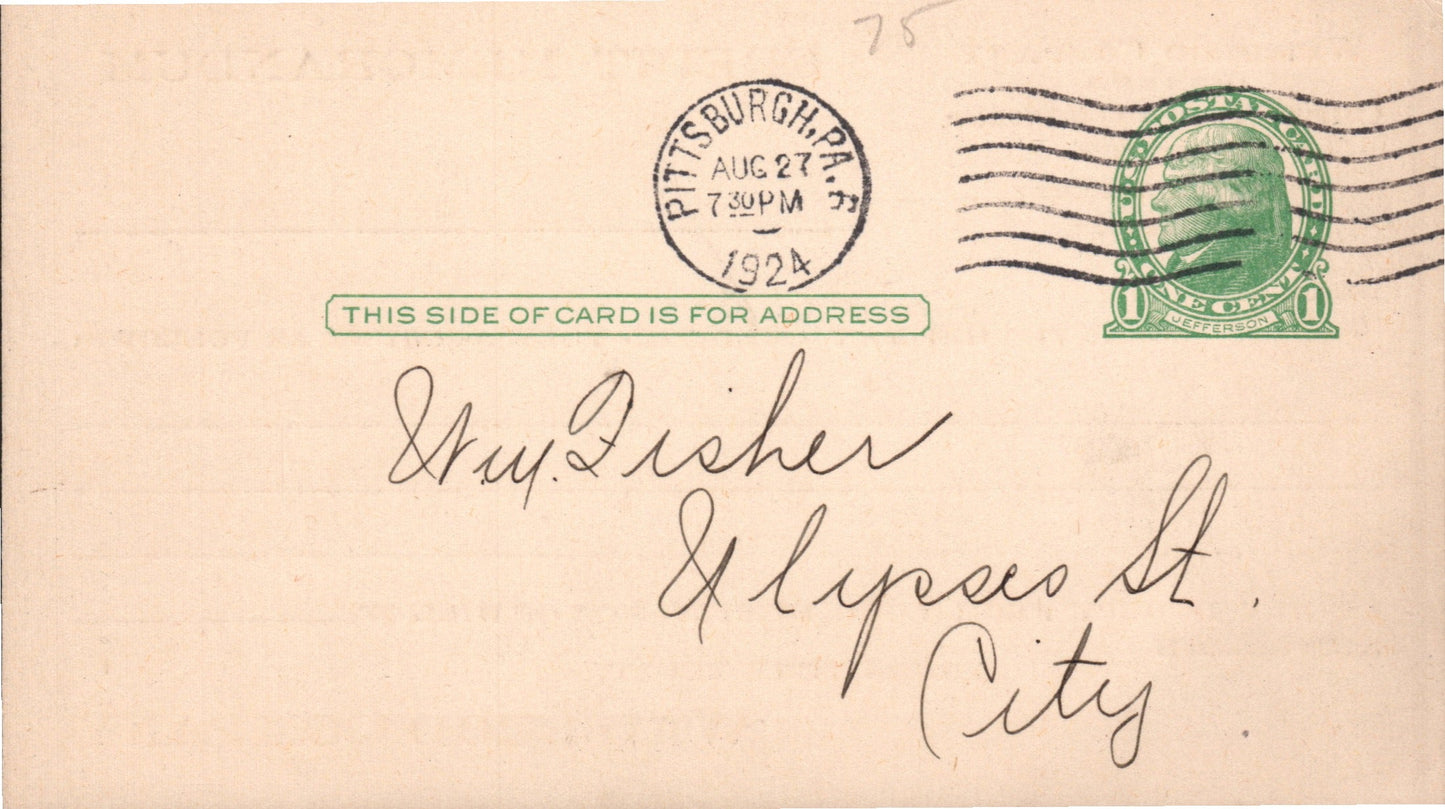 75
PITTSBURGH, PA.
AUG 27
7 30 PM
1924
U·S POSTAL CARD
ONE CENT
1 JEFFERSON 1
THIS SIDE OF CARD IS FOR ADDRESS
Wm. Fisher
Ulysses St.
City